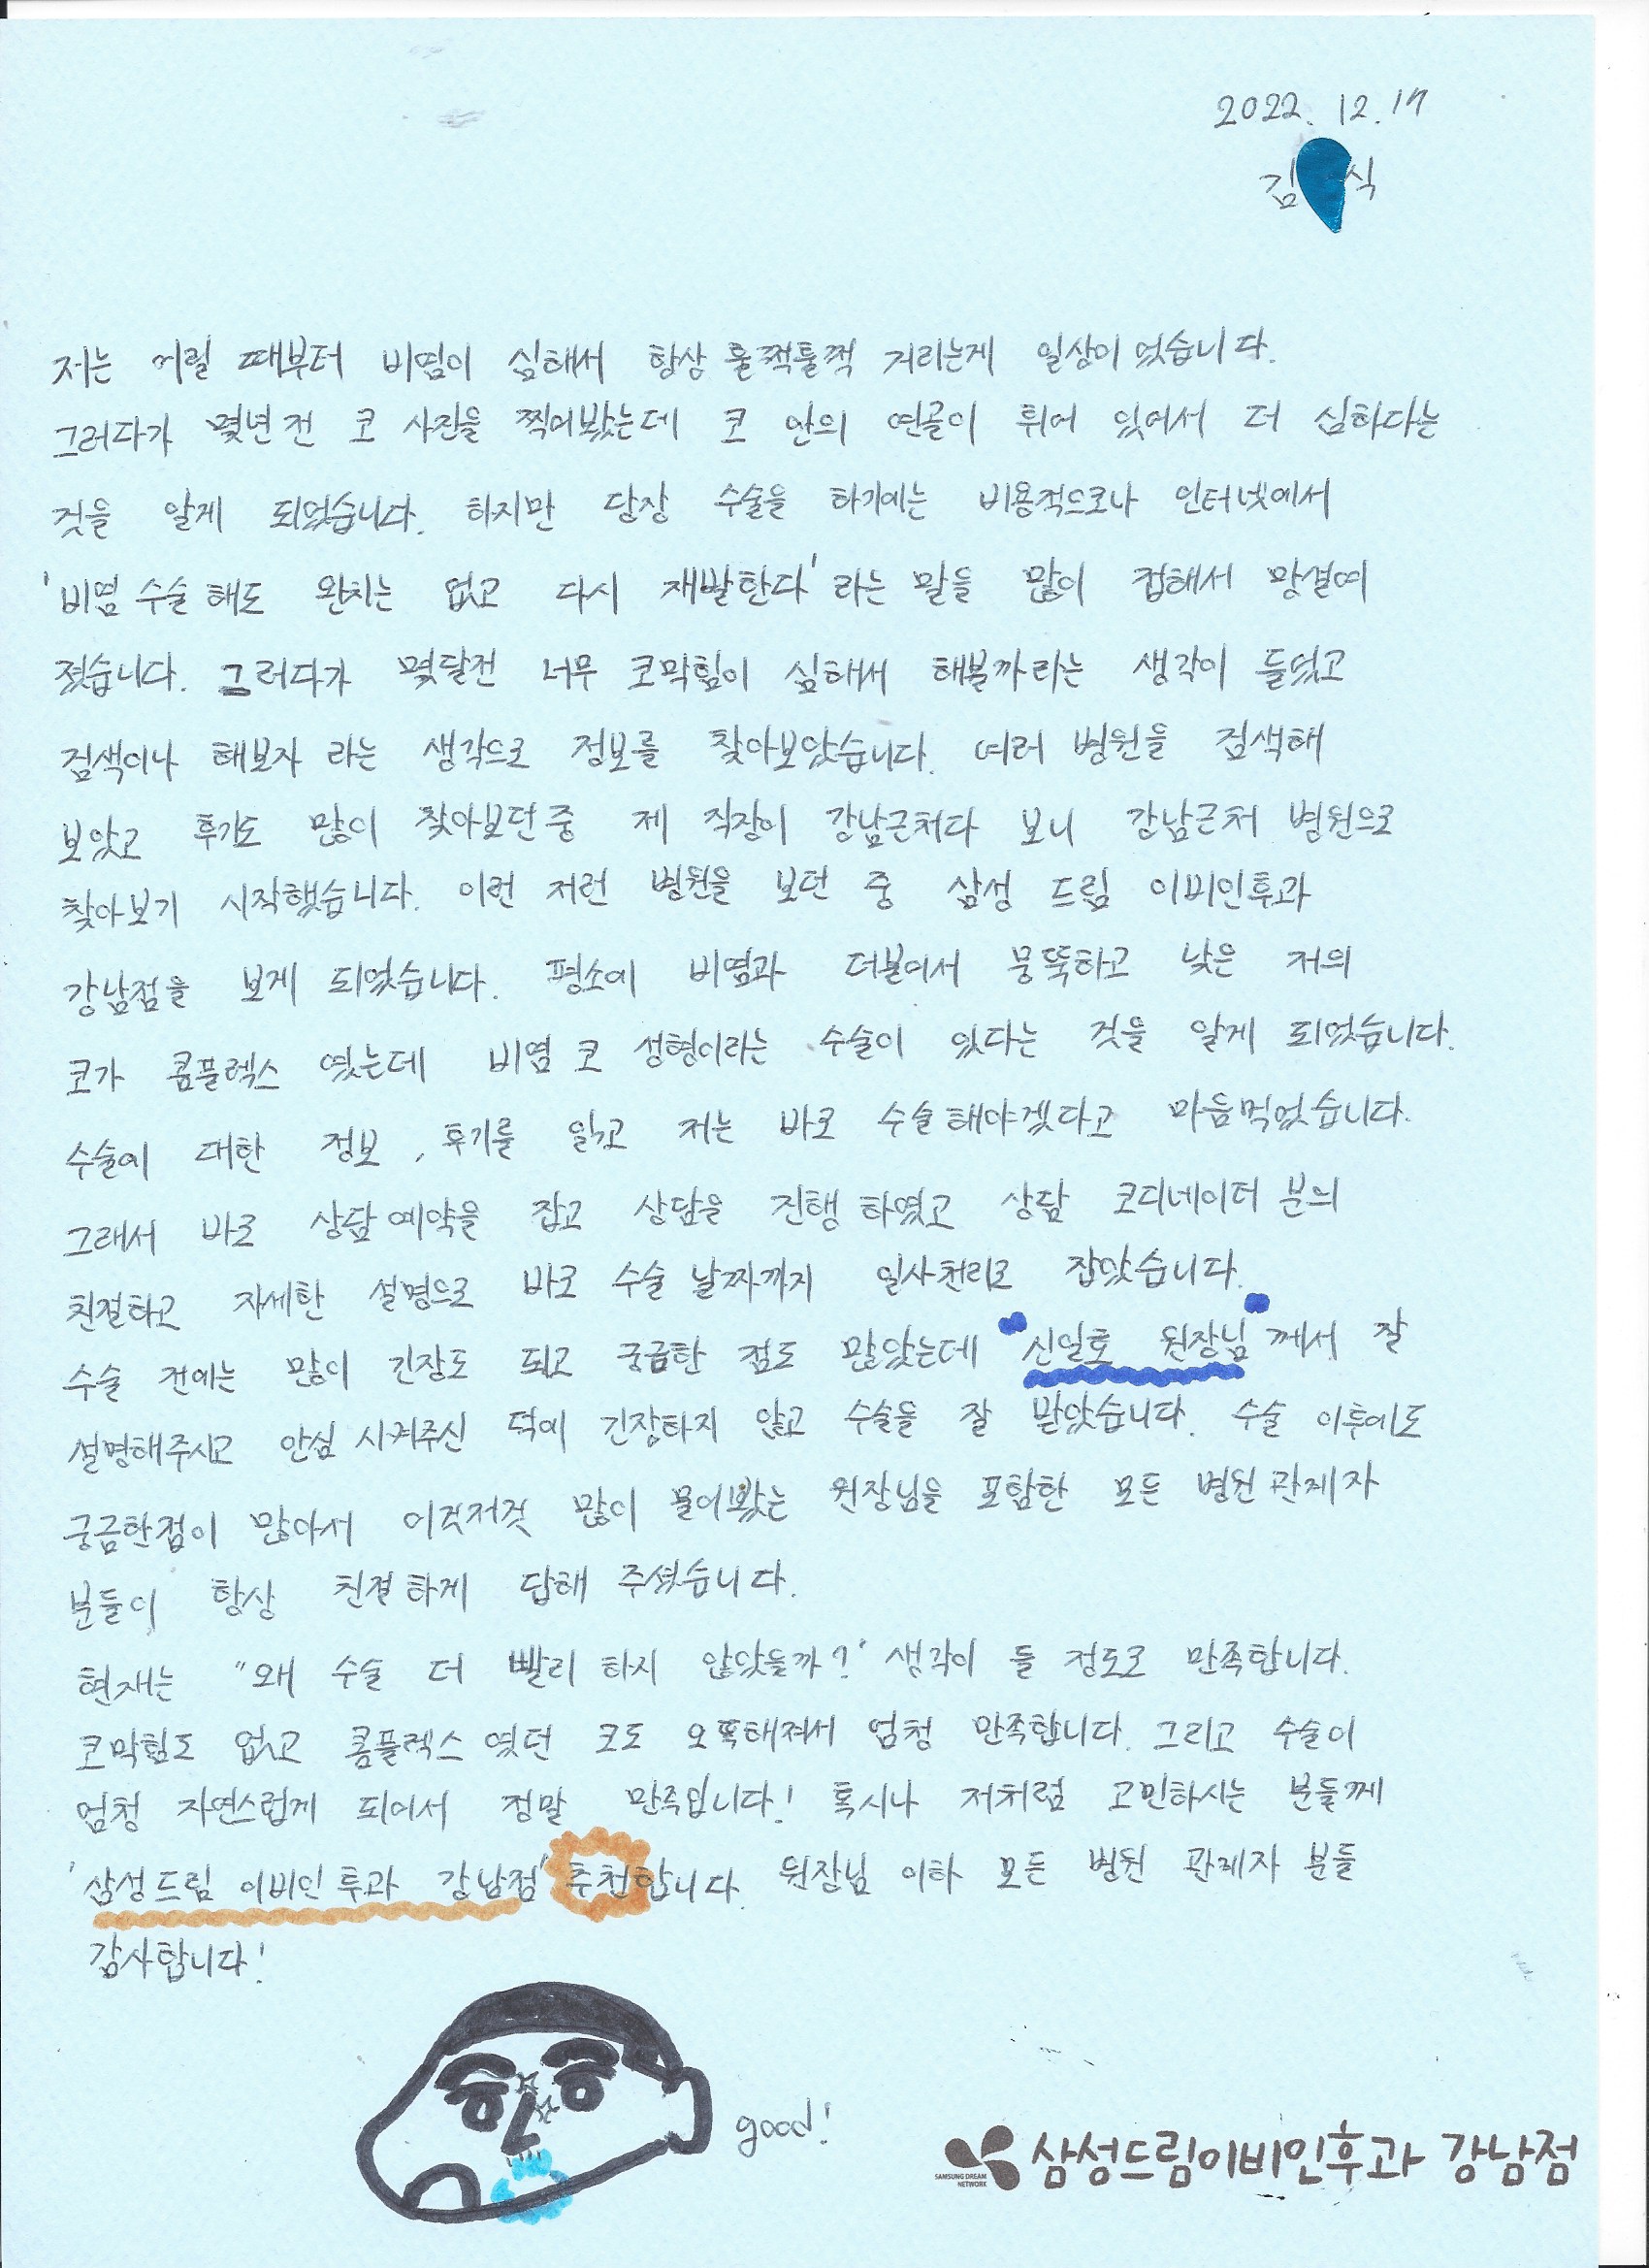 2022. 12. 17
김 식
저는 어릴 때부터 비염이 심해서 항상 훌쩍훌쩍 거리는게 일상이었습니다.
그러다가 몇년전 코 사진을 찍어봤는데 코 안의 연골이 휘어 있어서 더 심하다는
것을 알게 되었습니다. 하지만 당장 수술을 하기에는 비용적으로나 인터넷에서
'비염 수술해도 완치는 없고 다시 재발한다' 라는 말을 많이 접해서 망설여
졌습니다. 그러다가 몇달전 너무 코막힘이 심해서 해볼까라는 생각이 들었고
검색이나 해보자 라는 생각으로 정보를 찾아보았습니다. 여러 병원을 검색해
보았고 후기도 많이 찾아보던중 제 직장이 강남근처다 보니 강남근처 병원으로
찾아보기 시작했습니다. 이런 저런 병원을 보던 중 삼성 드림 이비인후과
강남점을 보게 되었습니다. 평소에 비염과 더불어서 뭉뚝하고 낮은 저의
코가 콤플렉스 였는데 비염 코 성형이라는 수술이 있다는 것을 알게 되었습니다.
수술에 대한 정보, 후기를 읽고 저는 바로 수술해야겠다고 마음먹었습니다.
그래서 바로 상담예약을 잡고 상담을 진행 하였고 상담 코디네이터 분의
친절하고 자세한 설명으로 바로 수술 날짜까지 일사천리로 잡았습니다.
수술 전에는 많이 긴장도 되고 궁금한 점도 많았는데 "신일호 원장님"께서 잘
설명해주시고 안심 시켜주신 덕에 긴장하지 않고 수술을 잘 받았습니다. 수술 이후에도
궁금한점이 많아서 이것저것 많이 물어봤는 원장님을 포함한 모든 병원 관계자
분들이 항상 친절하게 답해 주셨습니다.
현재는 "왜 수술 더 빨리 하지 않았을까?" 생각이 들 정도로 만족합니다.
코막힘도 없고 콤플렉스였던 코도 오똑해져서 엄청 만족합니다. 그리고 수술이
엄청 자연스럽게 되어서 정말 만족입니다! 혹시나 저처럼 고민하시는 분들께
'삼성드림 이비인후과 강남점' 추천합니다. 원장님 이하 모든 병원 관계자 분들
감사합니다!
good!
SAMSUNG DREAM NETWORK
삼성드림이비인후과 강남점